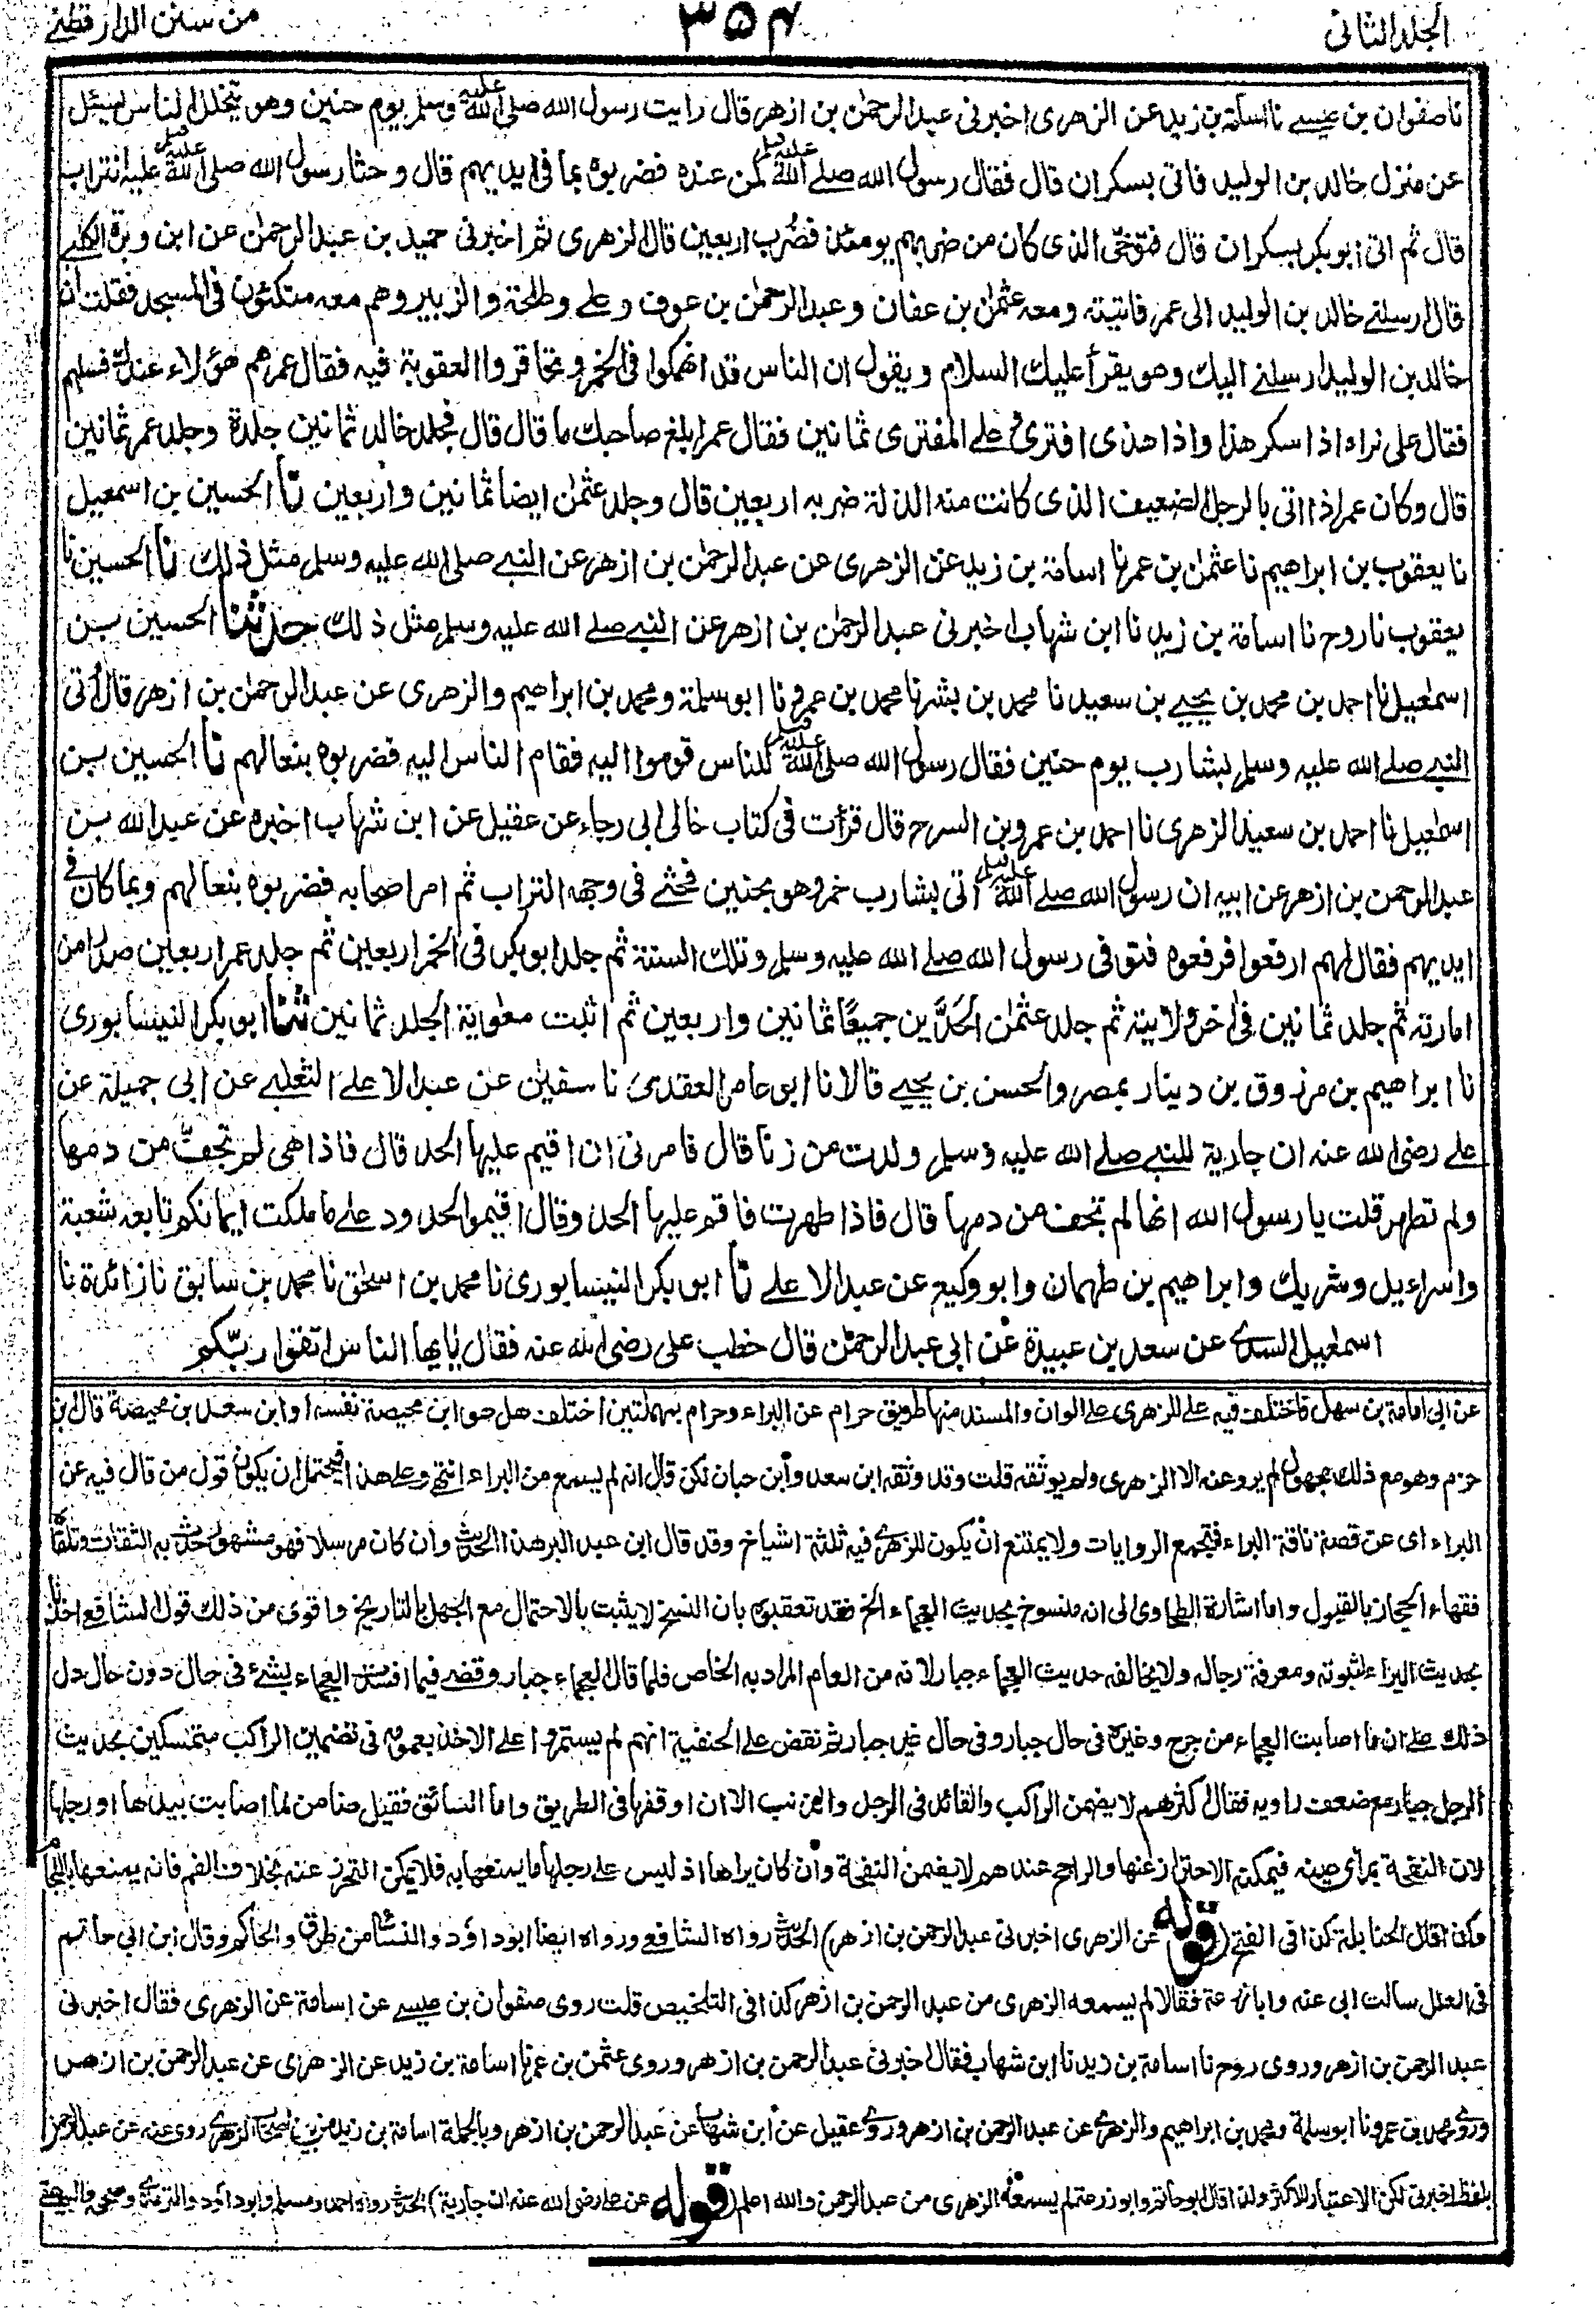 الجلد الثانى
٣٥٤
من سنن الدارقطنى
نا صفوان بن عيسے نا اسامة بن زيد عن الزهرى اخبرنى عبد الرحمٰن بن ازهر قال رايت رسول الله صلى الله عليه وسلم يوم حنين وهو يتخلل الناس يسئل
عن منزل خالد بن الوليد فاتى بسكران قال فقال رسول الله صلے الله عليه وسلم لمن عنده فضربوه بما فى ايديهم قال و حثا رسول الله صلى الله عليه وسلم عليه التراب
قال ثم اتى ابو بكر بسكران قال فتوخّى الذى كان من ضربهم يومئذ فضُرب اربعين قال الزهرى ثم اخبرنى حميد بن عبد الرحمٰن عن ابن وبرة الكلبے
قال ارسلنے خالد بن الوليد الى عمر فاتيته ومعه عثمٰن بن عفان و عبد الرحمٰن بن عوف و علے وطلحة والزبير وهم معه متكئون فى المسجد فقلت ان
خالد بن الوليد ارسلنے اليك وهو يقرأ عليك السلام ويقول ان الناس قد انهمكوا فى الخمر و تحاقروا العقوبة فيه فقال عمر هم هؤلاء عندك فسلهم
فقال على نراه اذا سكر هذا واذا هذى افترى و علے المفترى ثمانين فقال عمر ابلغ صاحبك ما قال قال فجلد خالد ثمانين جلدة وجلد عمر ثمانين
قال وكان عمر اذا اتى بالرجل الضعيف الذى كانت منه الذلة ضربه اربعين قال وجلد عثمٰن ايضا ثمانين و اربعين نا الحسين بن اسمعيل
نا يعقوب بن ابراهيم نا عثمٰن بن عمر نا اسامة بن زيد عن الزهرى عن عبد الرحمٰن بن ازهر عن النبے صلى الله عليه وسلم مثل ذلك نا الحسين نا
يعقوب نا روح نا اسامة بن زيد نا ابن شهاب اخبرنى عبد الرحمٰن بن ازهر عن النبے صلے الله عليه وسلم مثل ذلك حدثنا الحسين بن
اسمٰعيل نا احمد بن محمد بن يحيے بن سعيد نا محمد بن بشر نا محمد بن عمرو نا ابو سلمة و محمد بن ابراهيم والزهرى عن عبد الرحمٰن بن ازهر قال أتى
النبے صلے الله عليه وسلم بشارب يوم حنين فقال رسول الله صلى الله عليه وسلم للناس قوموا اليه فقام الناس اليه فضربوه بنعالهم نا الحسين بن
اسمٰعيل نا احمد بن سعيد الزهرى نا احمد بن عمرو بن السرح قال قرأت فى كتاب خالى ابى رجاء عن عقيل عن ابن شهاب اخبره عن عبد الله بن
عبد الرحمن بن ازهر عن ابيه ان رسول الله صلے الله عليه وسلم اتى بشارب خمر وهو بحنين فحثے فى وجهه التراب ثم امر اصحابه فضربوه بنعالهم وبما كان فى
ايديهم فقال لهم ارفعوا فرفعوه فتوفى رسول الله صلے الله عليه وسلم وتلك السنة ثم جلد ابو بكر فى الخمر اربعين ثم جلد عمر اربعين صدرا من
امارته ثم جلد ثمانين فى اخر ولايته ثم جلد عثمٰن الحَدَّين جميعًا ثمانين واربعين ثم اثبت معٰوية الجلد ثمانين ثنا ابو بكر النيسابورى
نا ابراهيم بن مرزوق بن دينار بمصر والحسن بن يحيے قالا نا ابو عامر العقدى نا سفيٰن عن عبد الاعلے الثعلبے عن ابى جميلة عن
علے رضى الله عنه ان جارية للنبے صلے الله عليه وسلم ولدت من زنا قال فامرنى ان اقيم عليها الحد قال فاذا هى لم تجفّ من دمها
ولم تطهر قلت يا رسول الله انها لم تجف من دمها قال فاذا طهرت فاقم عليها الحد وقال اقيموا الحدود علے ما ملكت ايمانكم تابعه شعبة
واسراءيل وشريك وابراهيم بن طهمان وابو وكيع عن عبد الاعلے نا ابو بكر النيسابورى نا محمد بن اسحٰق نا محمد بن سابق نا زائدة نا
اسمعيل السدے عن سعد بن عبيدة عن ابى عبد الرحمٰن قال خطب على رضى الله عنه فقال يٰايها الناس اتقوا ربّكم
عن ابى امامة بن سهل فاختلف فيه علے الزهرى علے الوان والمسند منها طريق حرام عن البراء وحرام بمهملتين اختلف هل هو ابن محيصة نفسه او ابن سعد بن محيصة قال ابن
حزم وهو مع ذلك مجهول لم يرو عنه الا الزهرى ولم يوثقه قلت وقد وثقه ابن سعد وأبن حبان لكن قال انه لم يسمع من البراء انتهے وعلے هذا فيحتمل ان يكون قول من قال فيه عن
البراء اى عن قصة ناقة البراء فتجمع الروايات ولا يمتنع ان يكون للزهرے فيه ثلثة اشياخ وقد قال ابن عبد البر هذا الحديث وان كان مرسلا فهو مشهور حدث به الثقات وتلقاه
فقهاء الحجاز بالقبول واما اشارة الطحاوى الى انه منسوخ بحديث العجماء الخ فقد تعقبوه بان النسخ لا يثبت بالاحتمال مع الجهل بالتاريخ واقوى من ذلك قول الشافعے اخذنا
بحديث البراء لثبوته ومعرفة رجاله ولا يخالفه حديث العجماء جبار لانه من العام المراد به الخاص فلما قال العجماء جبار وقضے فيما افسدت العجماء بشئ فى حال دون حال دل
ذلك علے ان ما اصابت العجماء من جرح وغيره فى حال جبار وفى حال غير جبار ثم نقض علے الحنفية انهم لم يستمروا علے الاخذ بعمومه فى تضمين الراكب متمسكين بحديث
الرجل جبار مع ضعف راويه فقال اكثرهم لا يضمن الراكب والقائد فى الرجل والذنب الا ان اوقفها فى الطريق واما السائق فقيل ضامن لما اصابت بيدها او رجلها
لان النفحة بمرأى عينه فيمكنه الاحتراز عنها والراجح عندهم لا يضمن النفحة وان كان يراها اذ ليس علے رجلها ما يمنعها به فلا يمكن التحرز عنه بخلاف الفم فانه يمنعها باللجام
وكذا قال الحنابلة كذا فى الفتح قوله (عن الزهرى اخبرنى عبد الرحمن بن ازهر) الحديث رواه الشافعے ورواه ايضا ابو داؤد والنسائى من طرق والحاكم وقال ابن ابى حاتم
فى العلل سالت ابى عنه وابا زرعة فقالا لم يسمعه الزهرى من عبد الرحمن بن ازهر كذا فى التلخيص قلت روى صفوان بن عيسے عن اسامة عن الزهرى فقال اخبرنى
عبد الرحمن بن ازهر وروى روح نا اسامة بن زيد نا ابن شهاب فقال اخبرنى عبد الرحمن بن ازهر وروى عثمن بن عمر نا اسامة بن زيد عن الزهرى عن عبد الرحمن بن ازهر
وروے محمد بن عمرو نا ابو سلمة ومحمد بن ابراهيم والزهرے عن عبد الرحمن بن ازهر وروے عقيل عن ابن شهاب عن عبد الرحمن بن ازهر وبالجملة اسامة بن زيد من بين اصحاب الزهرے روى عنه عن عبد الرحمن
بلفظ اخبرنى لكن الاعتبار للاكثر ولذا قال ابو حاتم وابو زرعة لم يسمعه الزهرى من عبد الرحمن والله اعلم قوله (عن علے رضى الله عنه ان جارية) الحديث رواه احمد ومسلم وابو داؤد والترمذے وصححه والبيهقے